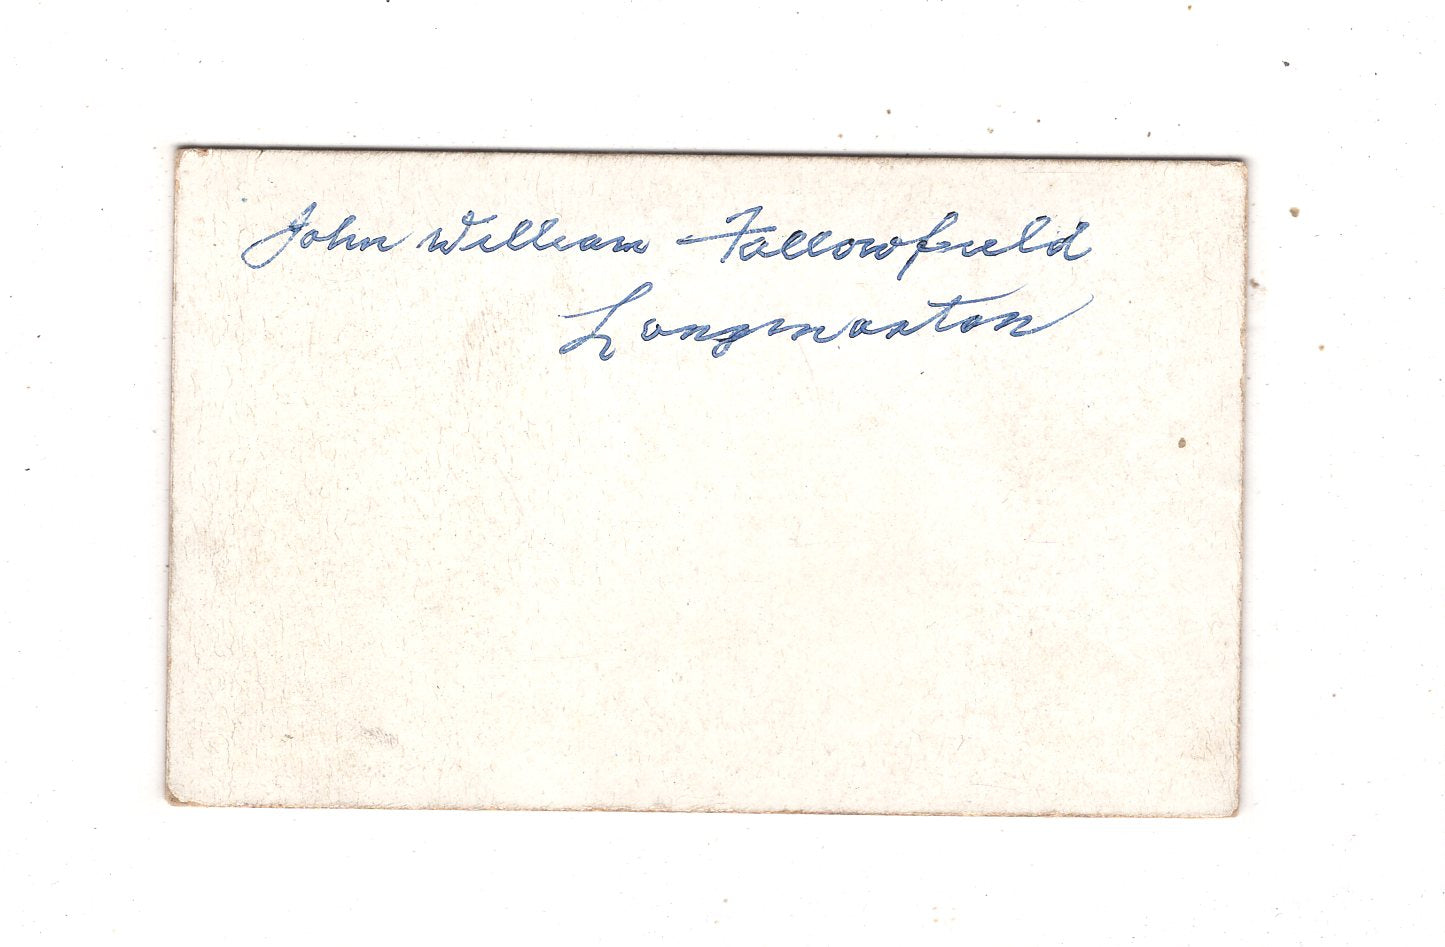 John William Fallowfield
Longmarton